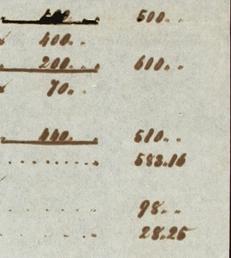 500.. 500..
400..
200.. 600..
70..
440.. 510..
.......... 583.16
98..
28.25